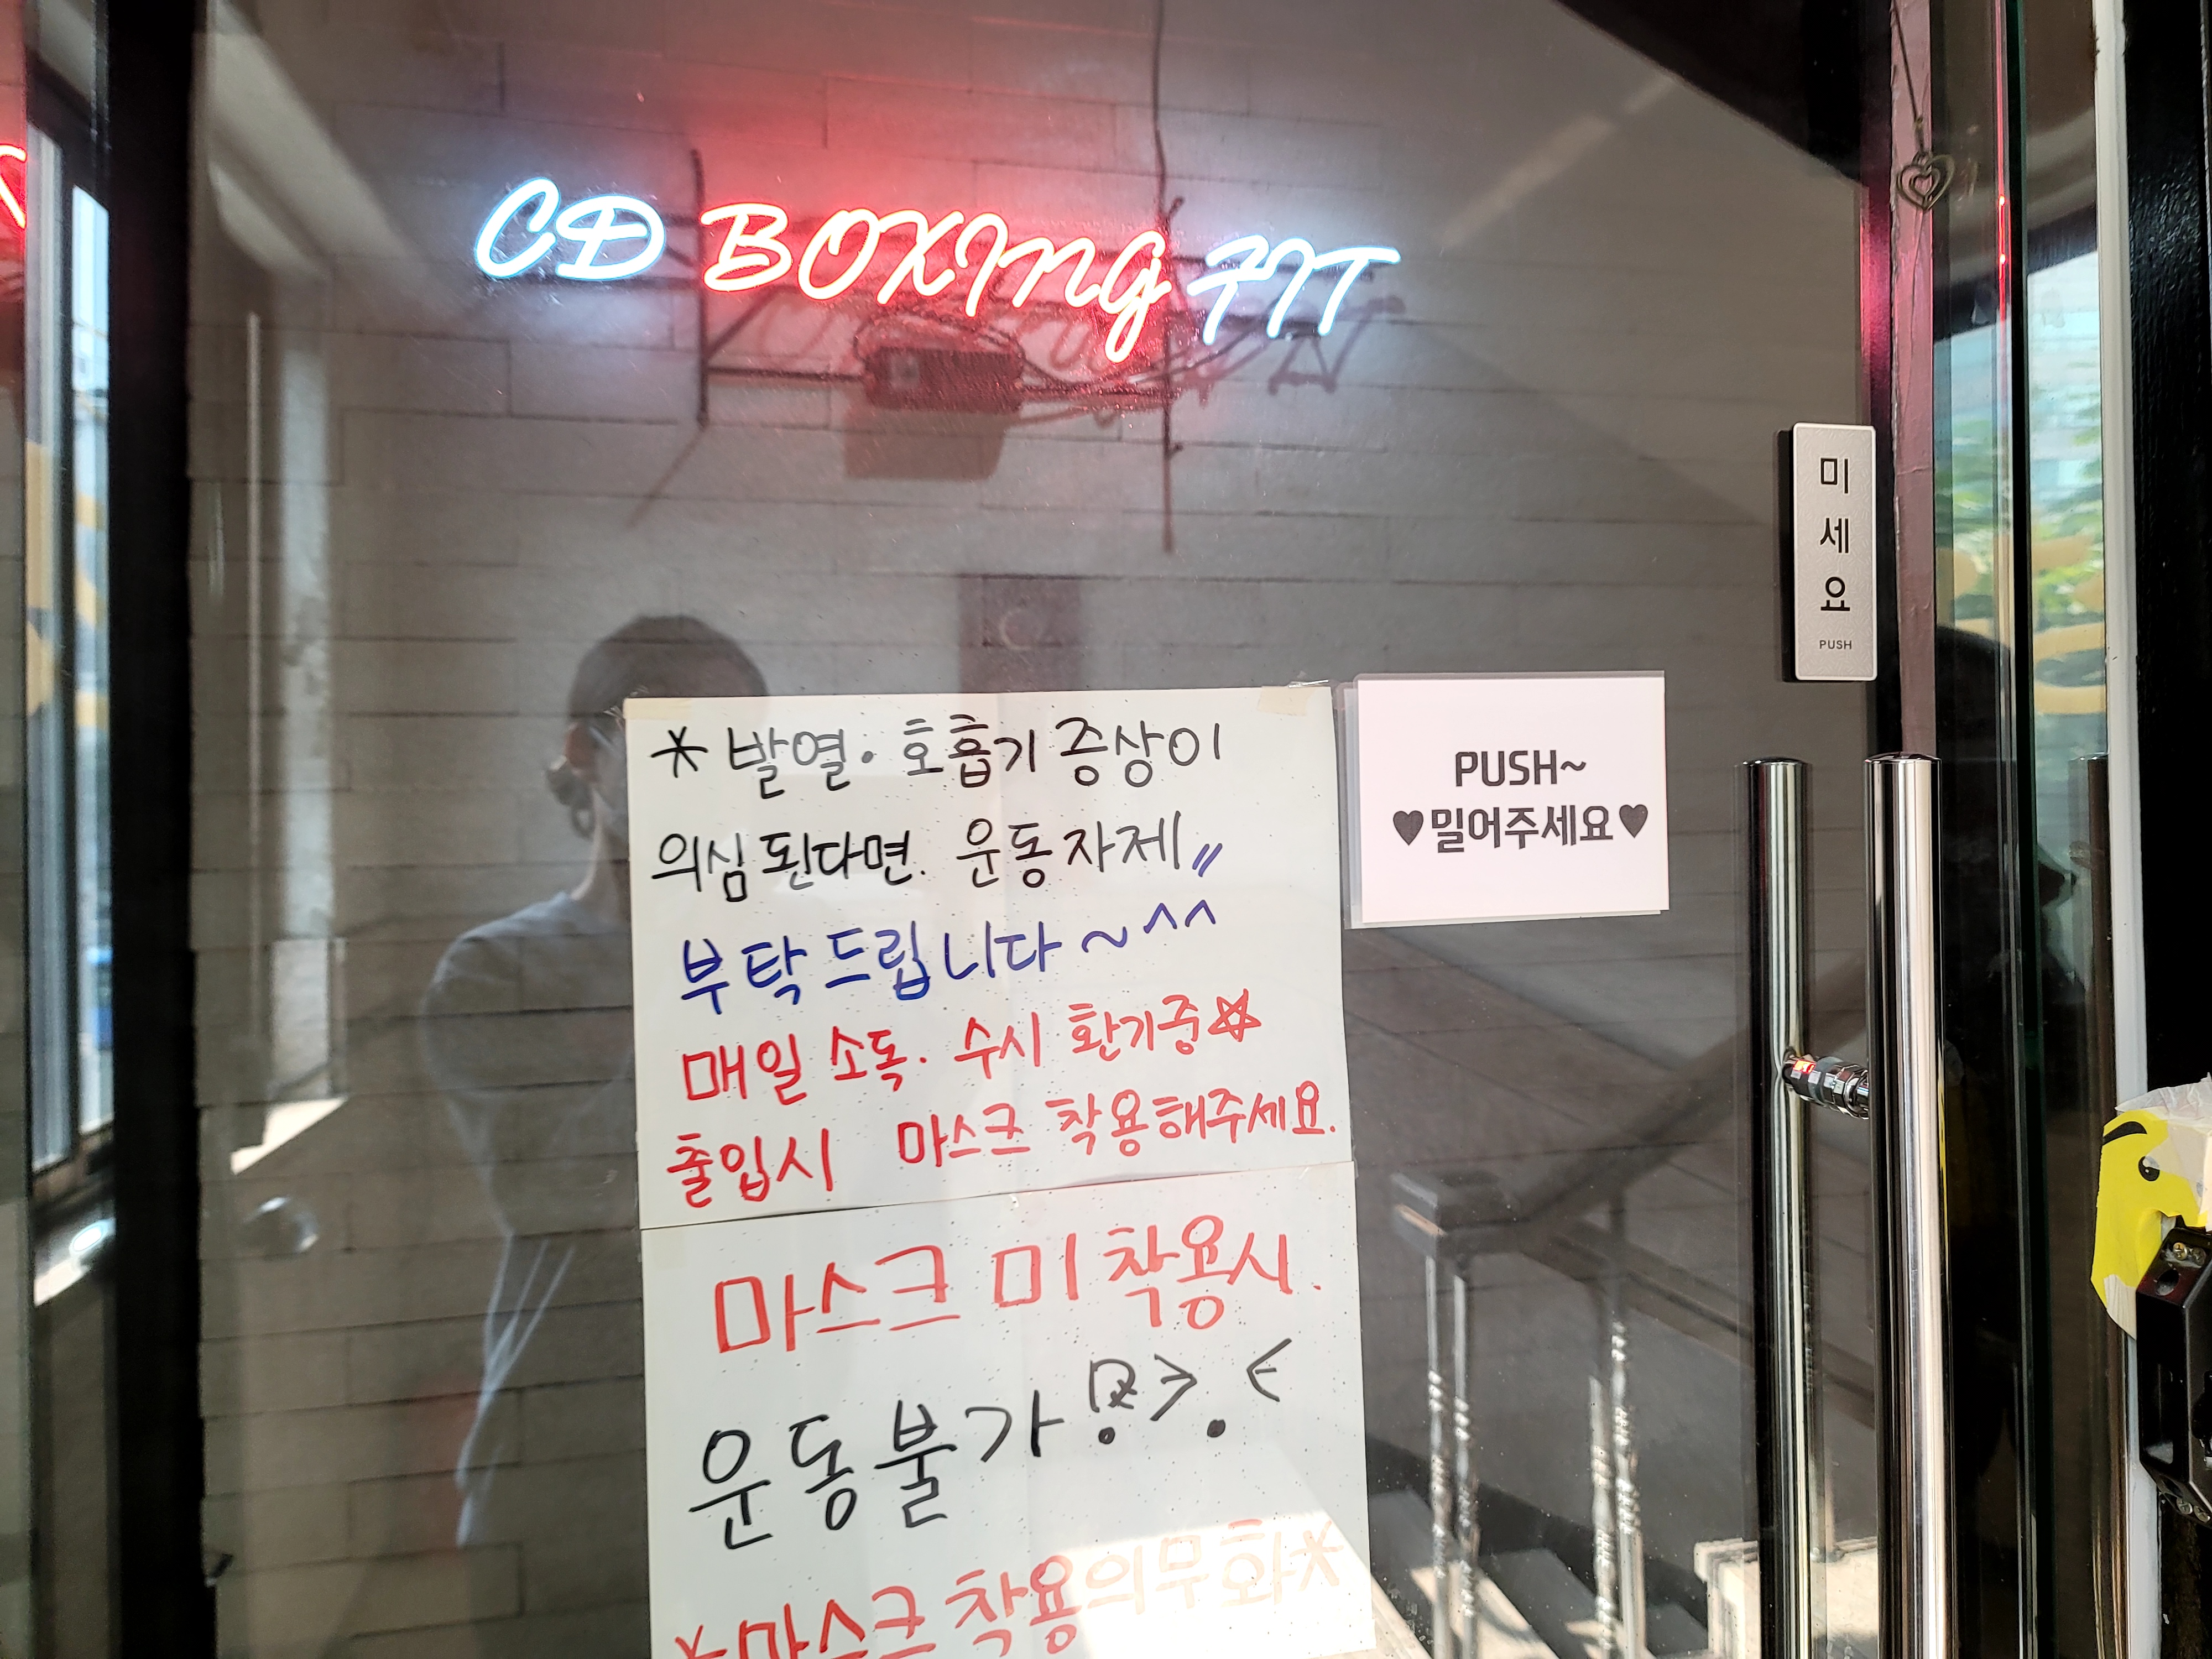 CD BOXING FIT
미
세
요
PUSH
PUSH~
♥밀어주세요♥
* 발열. 호흡기 증상이
의심 된다면. 운동 자제〃
부탁 드립니다~^^
매일 소독. 수시 환기중☆
출입시 마스크 착용해주세요.
마스크 미 착용시.
운동 불가
*마스크 착용의무화*